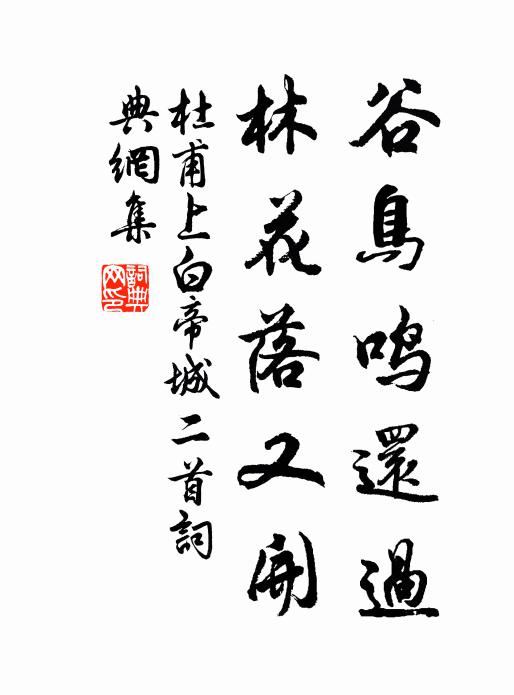 谷鳥鸣還過
林花落又開
杜甫上白帝城二首詞
典網集
詞典网印